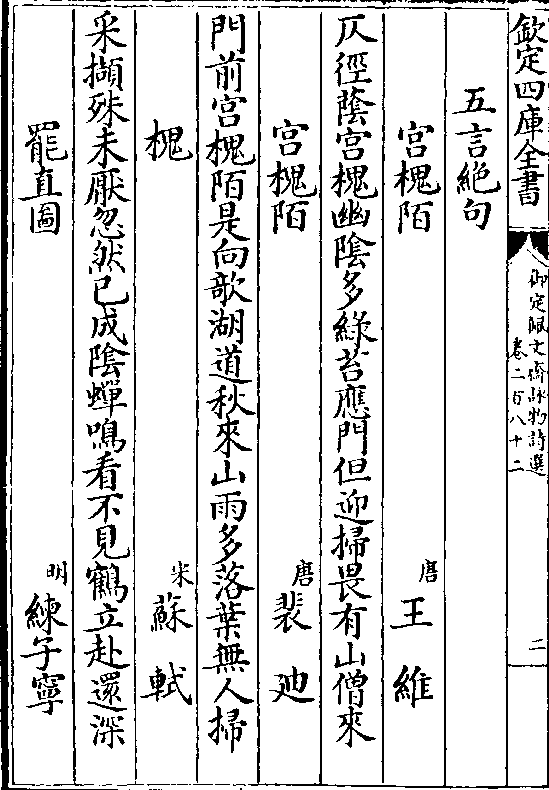 欽定四庫全書
御定佩文齋詠物詩選
卷二百八十二
二
五言絶句
宫槐陌
唐 王維
仄徑蔭宫槐幽陰多綠苔應門但迎掃畏有山僧來
宫槐陌
唐 裴廸
門前宫槐陌是向欹湖道秋來山雨多落葉無人掃
槐
宋 蘇軾
采擷殊未厭忽然已成陰蟬鳴看不見鶴立赴還深
罷直圖
明 練子寧